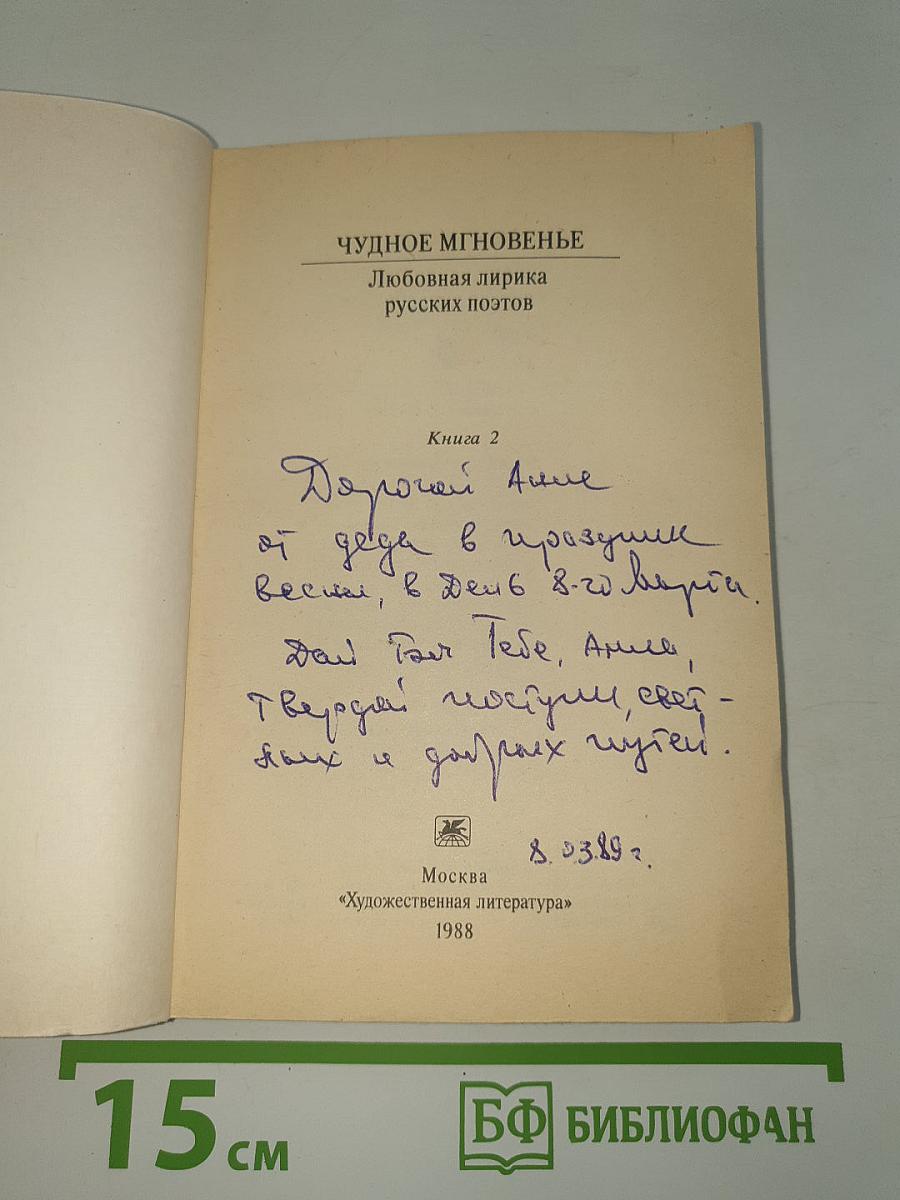 ЧУДНОЕ МГНОВЕНЬЕ
Любовная лирика
русских поэтов
Книга 2
Дорогой Анне
от деда в праздник
весны, в День 8-го Марта.
Дай Бог Тебе, Анна,
твердой поступи, свет-
лых и добрых путей.
8.03.89 г.
Москва
«Художественная литература»
1988
15 см
БФ БИБЛИОФАН